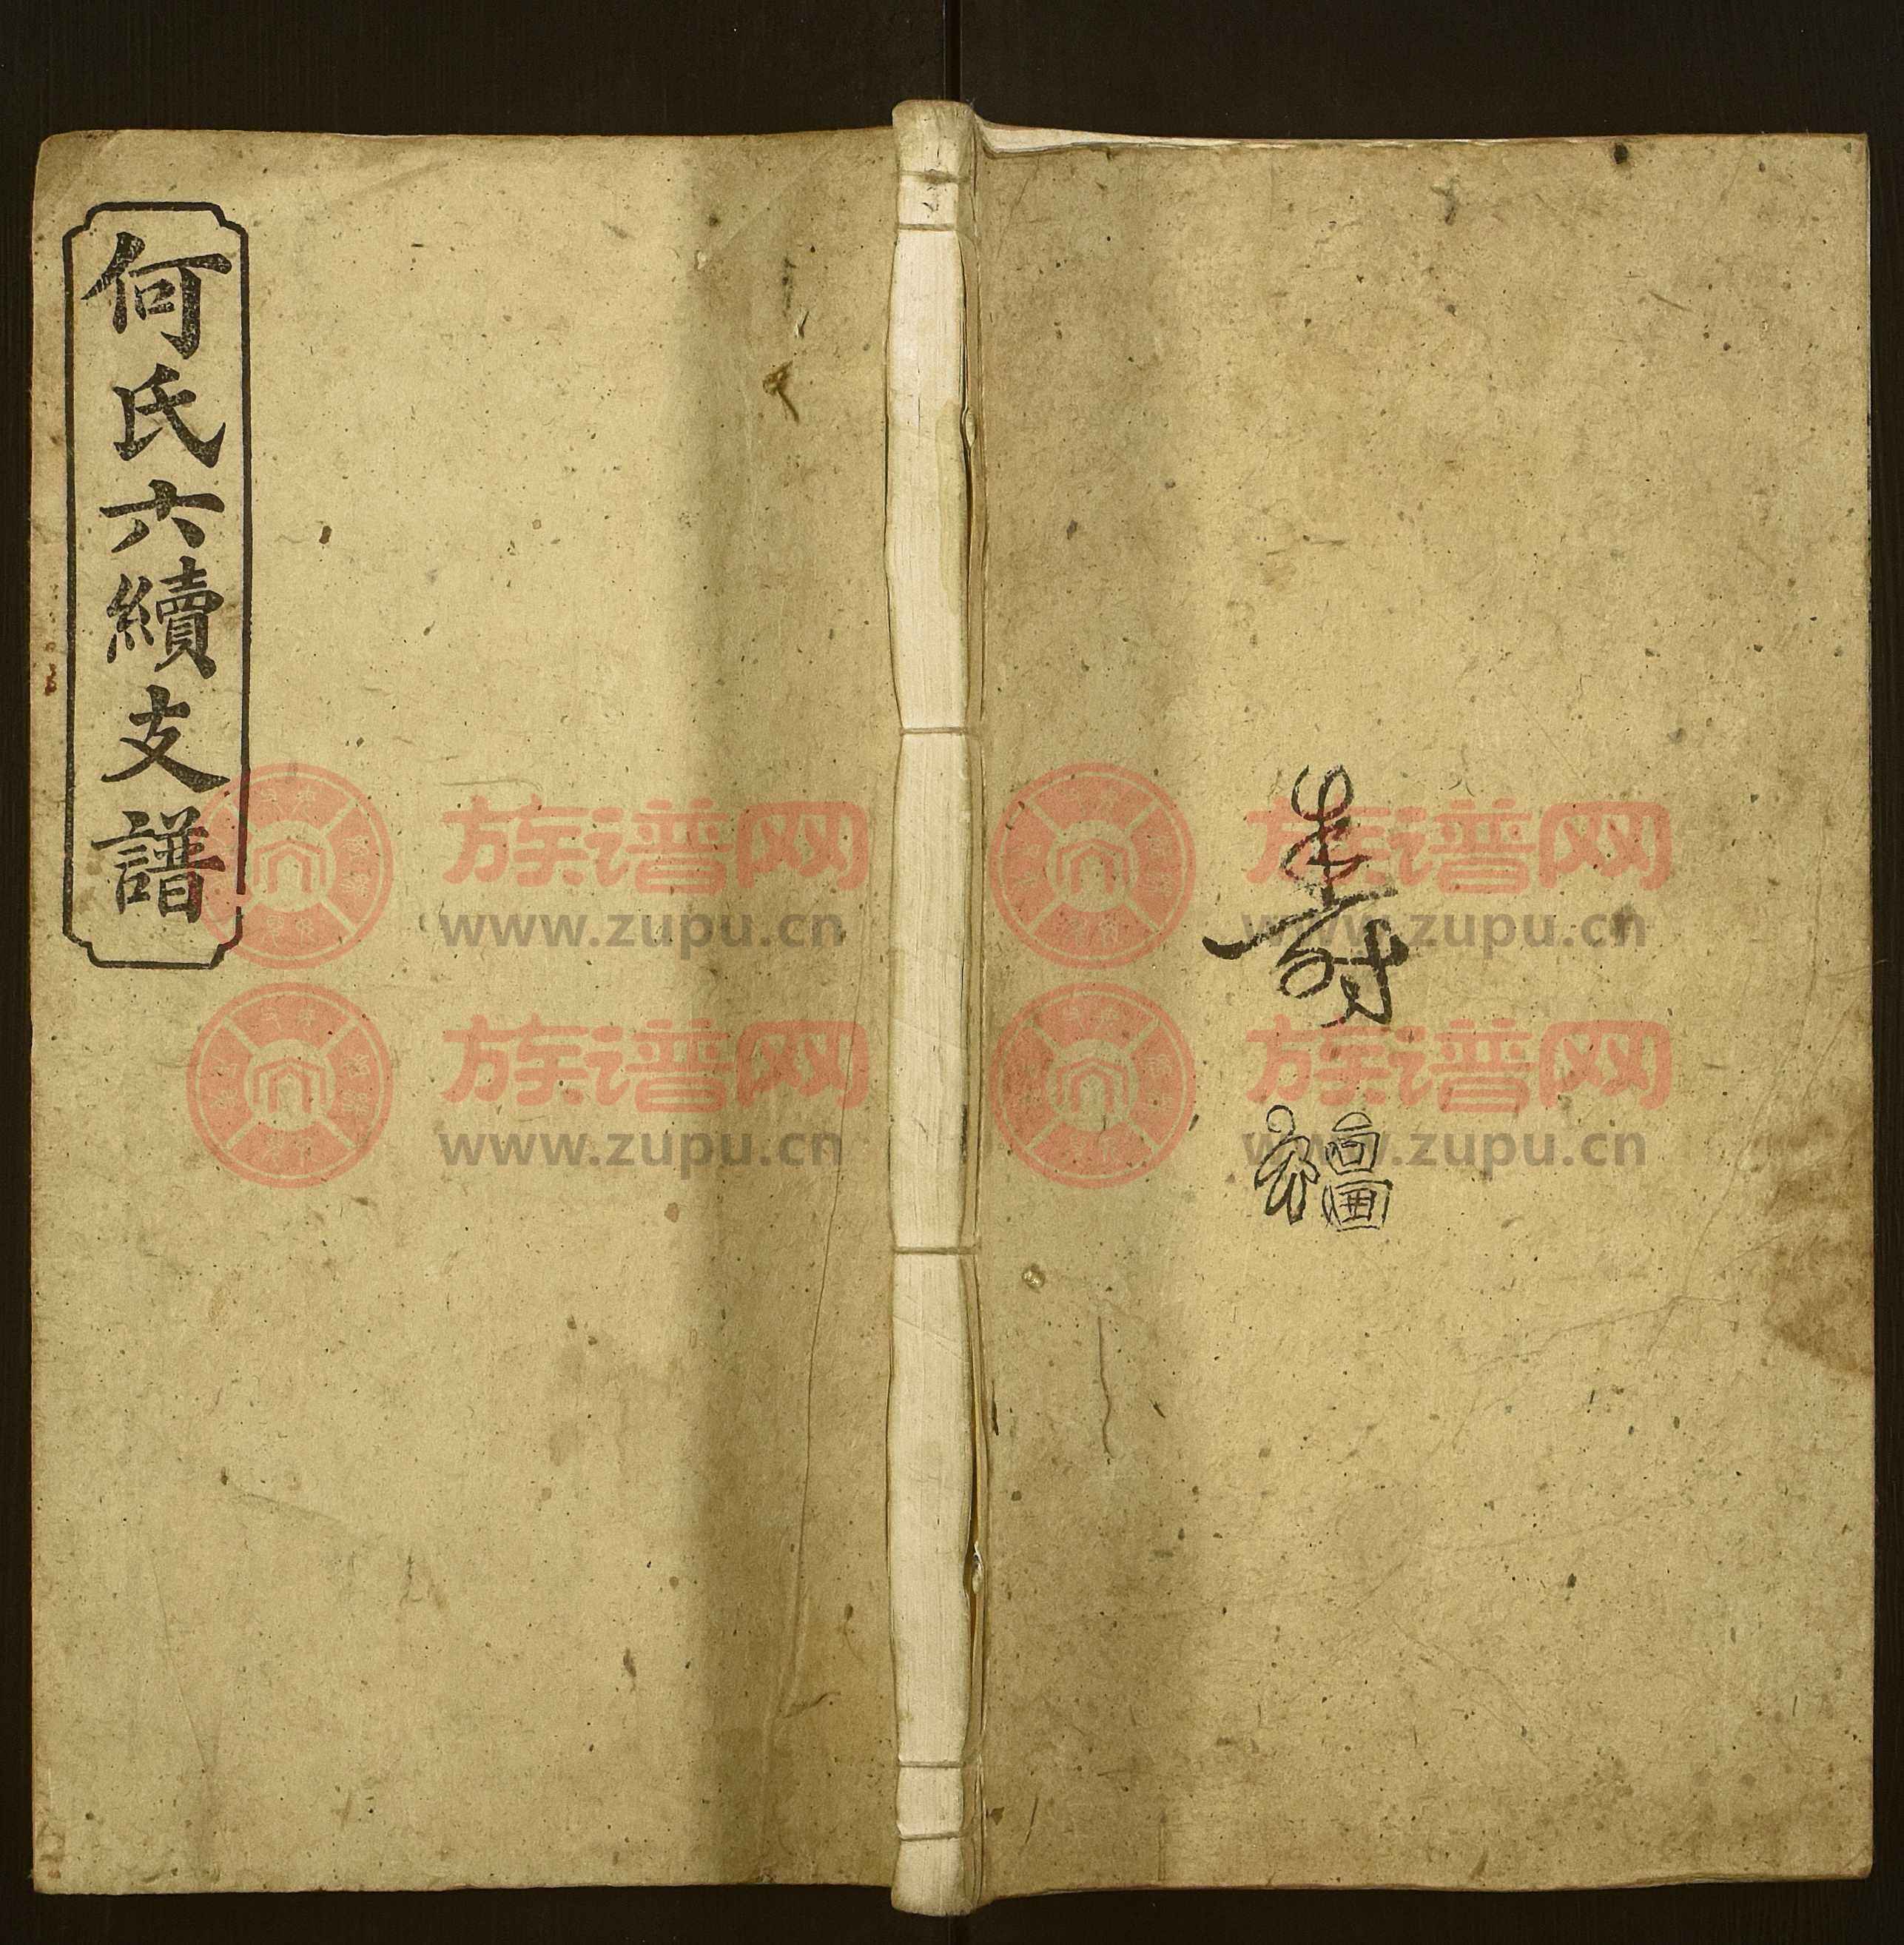 何氏六續支譜
壽
福
族谱网
www.zupu.cn
族谱网
www.zupu.cn
族谱网
www.zupu.cn
族谱网
www.zupu.cn